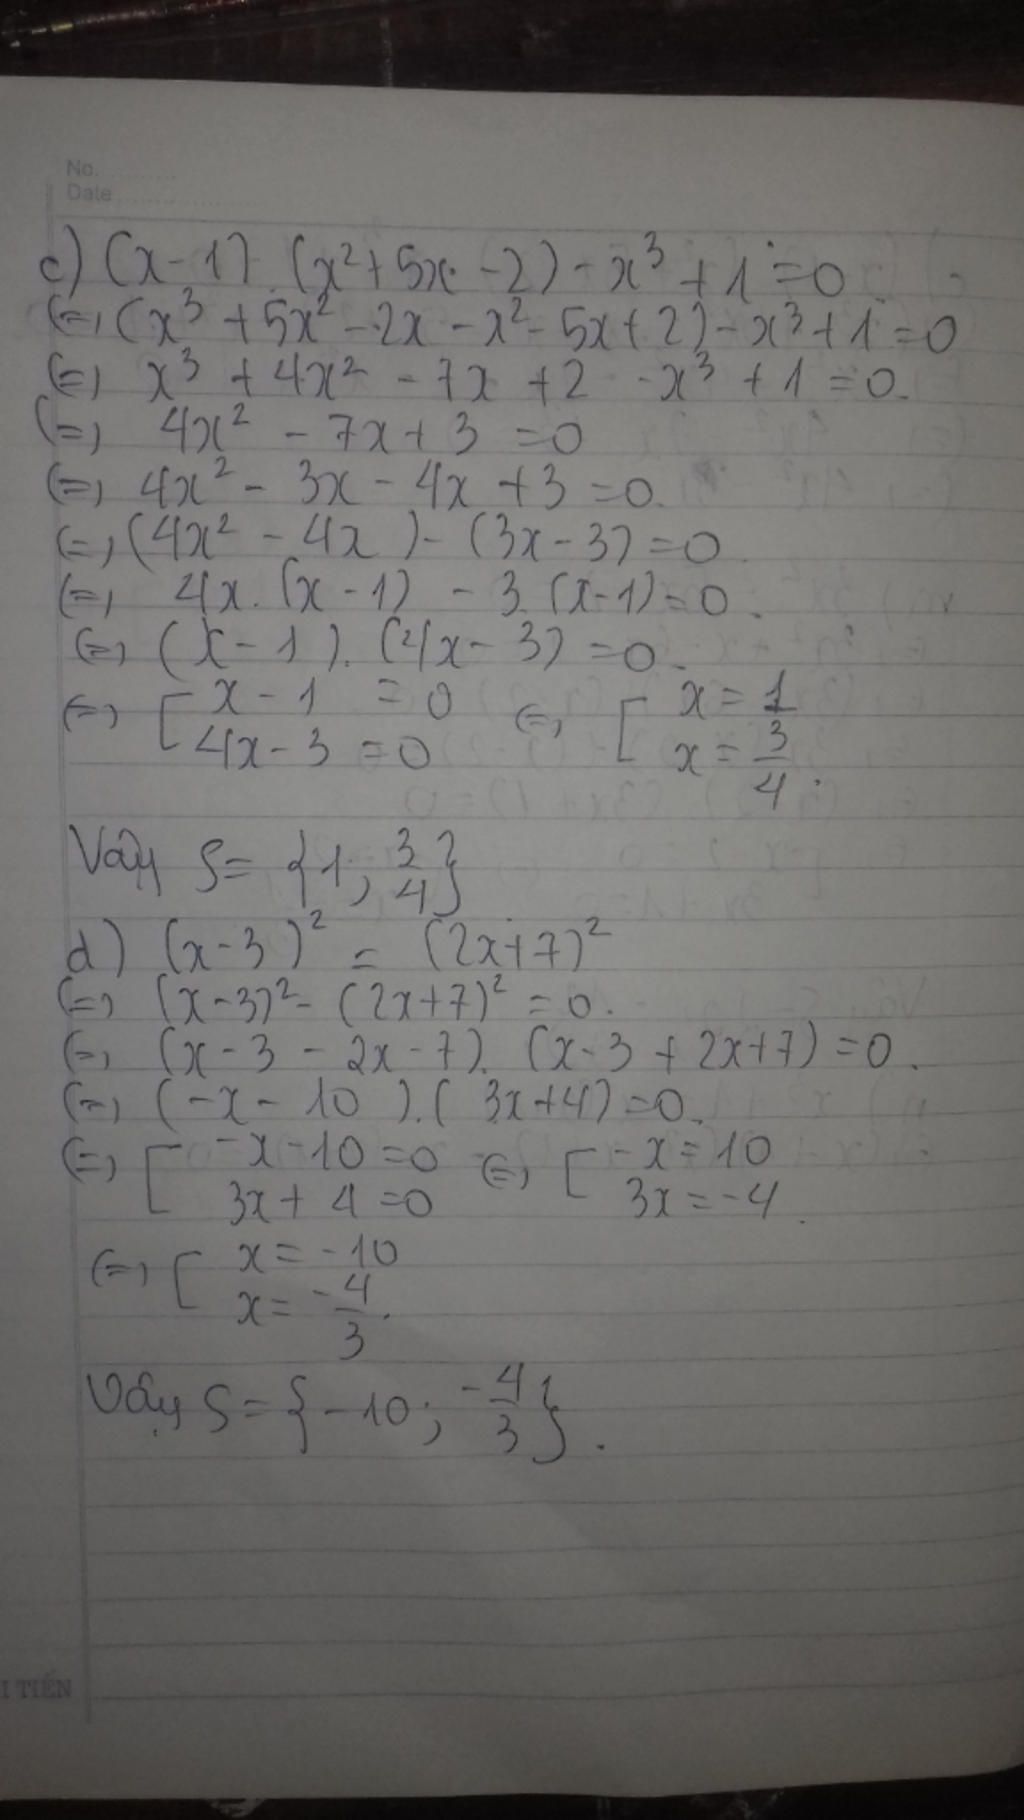 No. ..........
Date ....................
c) (x-1) (x²+5x-2) - x³ + 1 = 0
(=) (x³ + 5x² - 2x - x² - 5x + 2) - x³ + 1 = 0
(=) x³ + 4x² - 7x + 2 - x³ + 1 = 0.
(=) 4x² - 7x + 3 = 0
(=) 4x² - 3x - 4x + 3 = 0.
(=) (4x² - 4x) - (3x - 3) = 0
(=) 4x. (x - 1) - 3 (x-1) = 0.
(=) (x - 1). (4x - 3) = 0.
(=) [ x - 1 = 0 (=) [ x = 1
4x - 3 = 0 x = 3/4.
Vậy S = {1; 3/4}
d) (x-3)² = (2x+7)²
(=) (x-3)² - (2x+7)² = 0.
(=) (x-3 - 2x-7). (x-3 + 2x+7) = 0.
(=) (-x - 10).( 3x+4) = 0.
(=) [ -x - 10 = 0 (=) [ -x = 10
3x + 4 = 0 3x = -4.
(=) [ x = -10
x = -4/3.
Vậy S = {-10; -4/3}.
I TIẾN